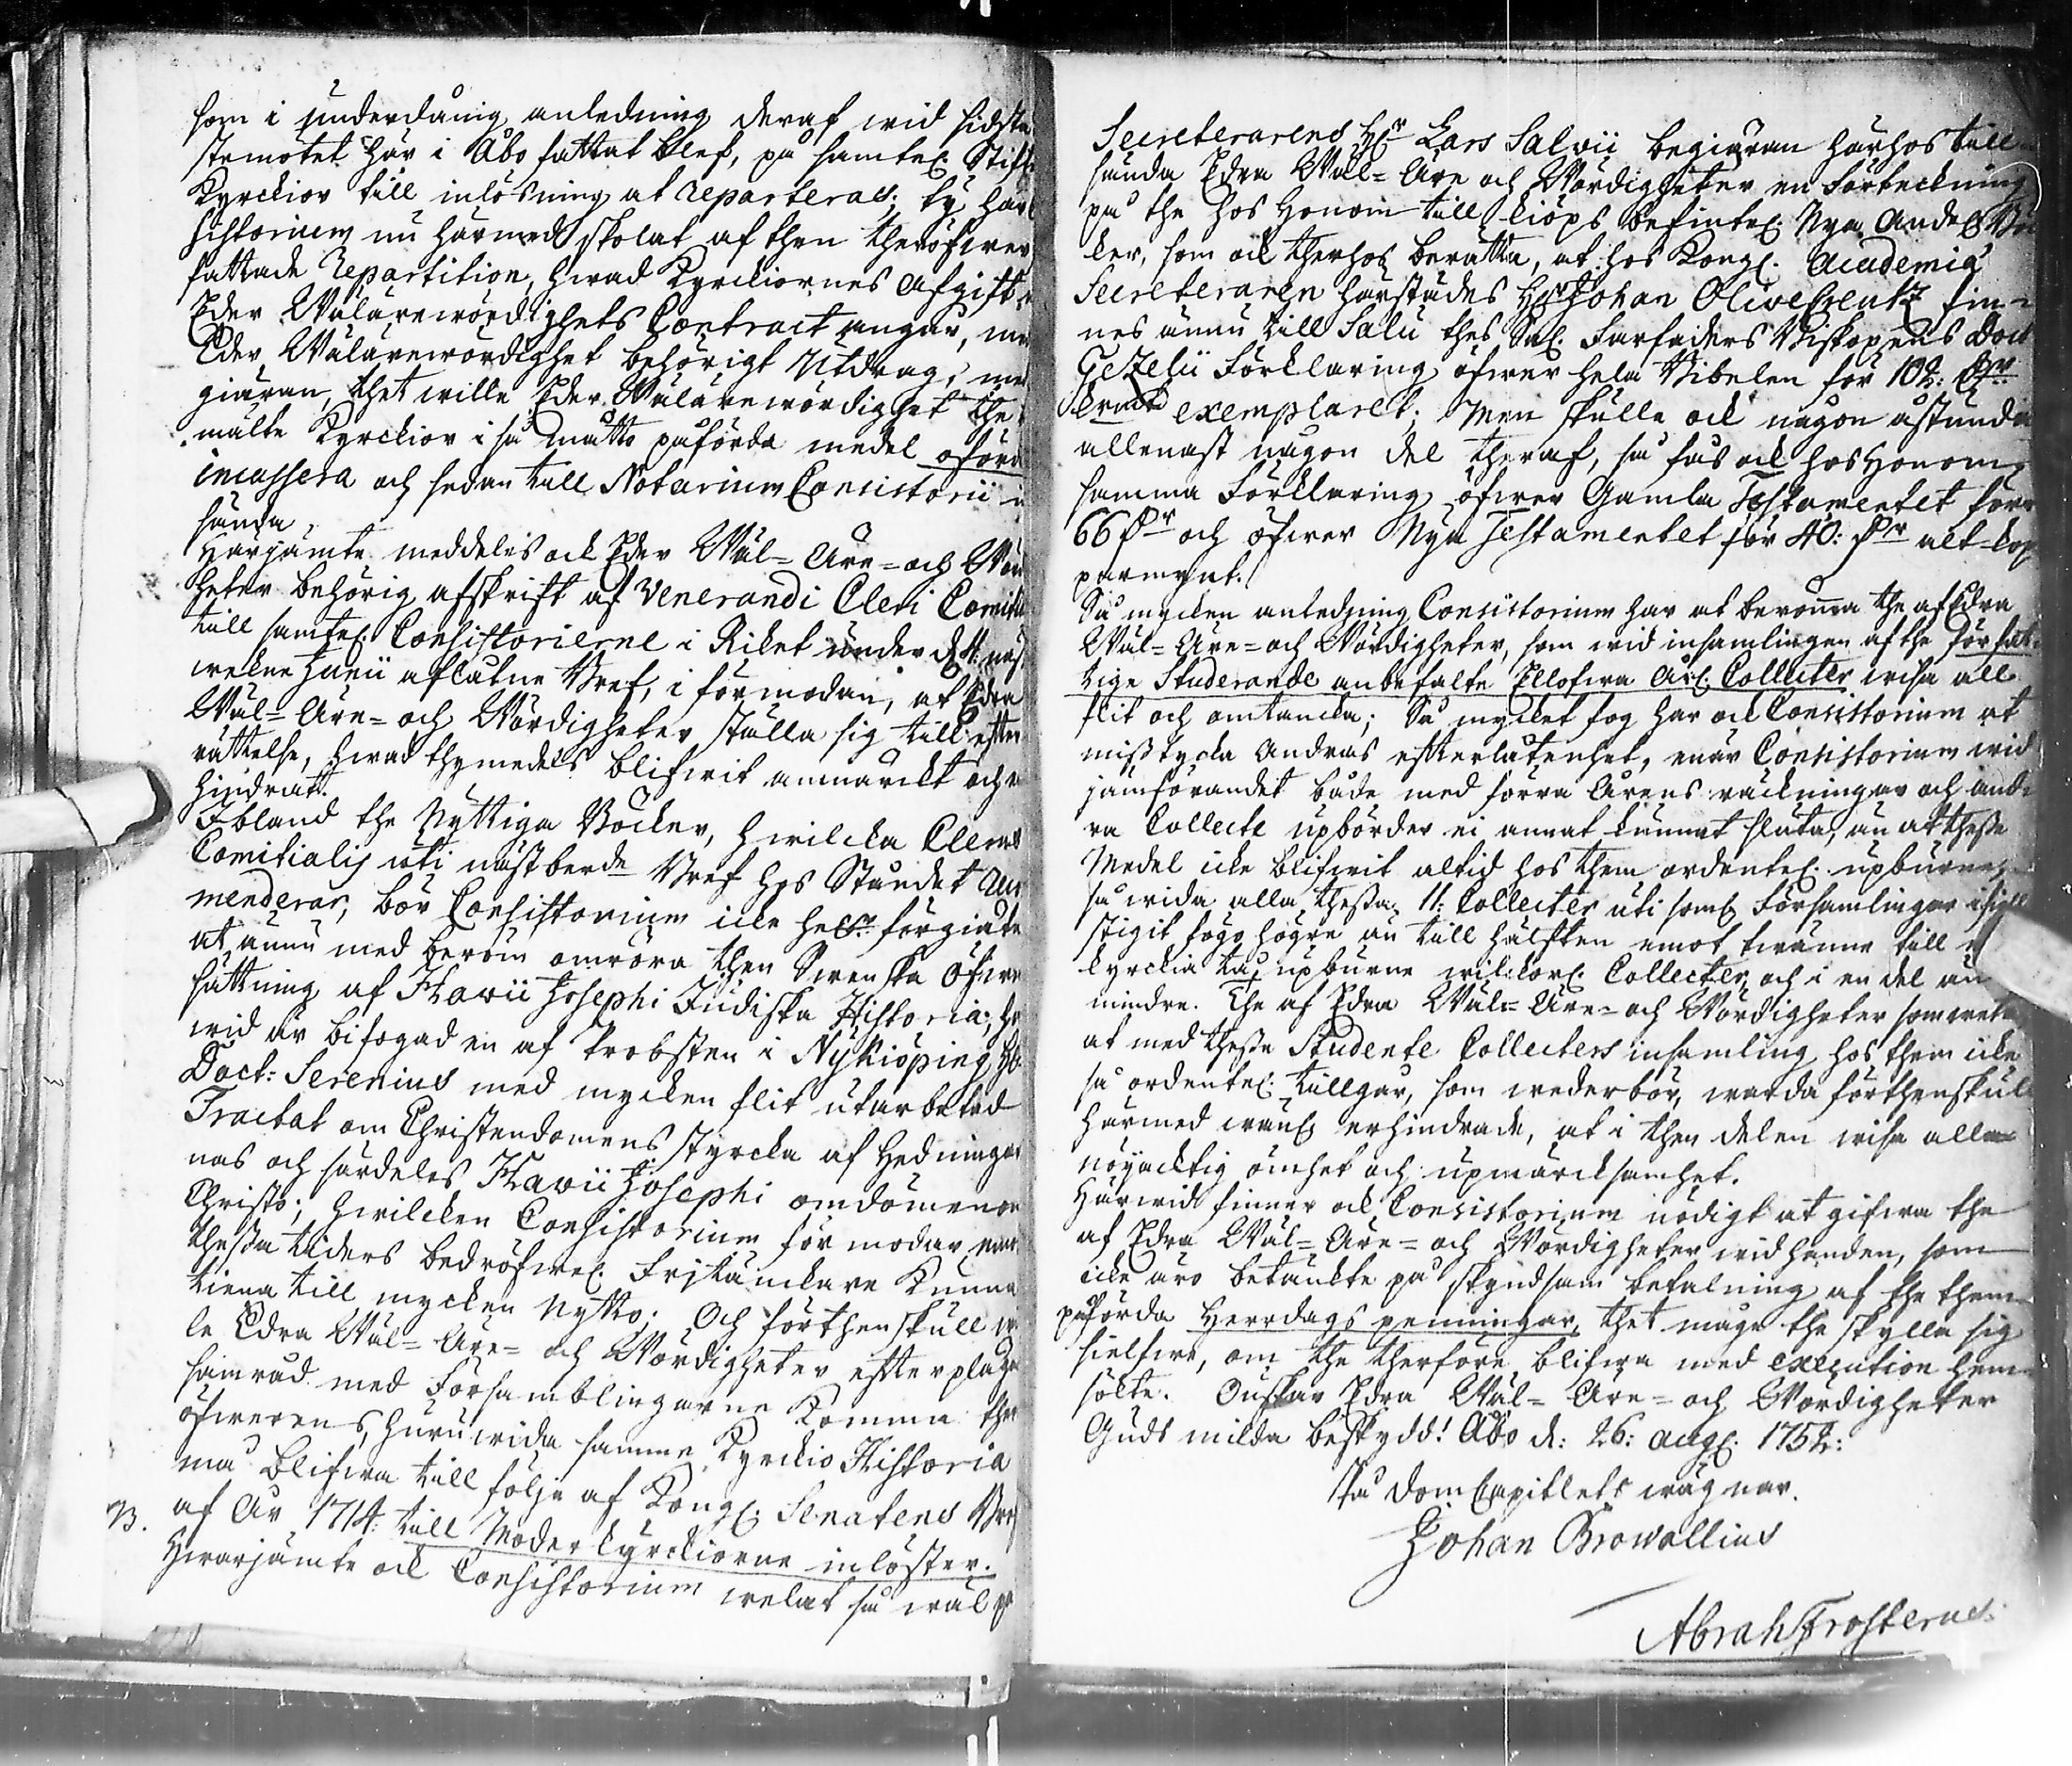 som i underdånig anledning deraf wid sidsta
stemötet här i Åbo fattat blef, på samtel. Stift
Kyrckior till inlösning at reparteras; ty har
sistorium nu härmed skolat af then theröfwer
fattade repartition, hwad Kyrckiornes afgift
Eder Wälärewördighets Contract angår,
Eder Wälärewördighet behörigt Utdrag,
giäran, thet wille Eder Wälärewördighet the
målte Kyrckior i så måtto påförda medel oförd
incassera och sedan till Notarium Consistorii
sända.
Härjämte meddeles ock Eder Wäl-Äre- och Wör
heter behörig afskrift af Venerandi Cleri Comita
till samtel. Consistorierne i Riket under d. 4. näst
wekne Junii aflåtne Bref, i förmodan, at Edra
Wäl-Äre- och Wördigheter ställa sig till efter
rättelse, hwad thymedels blifwit anmärckt och
hindrat.
Ibland the Nyttiga Böcker, hwilcka Clerus
Comitialis uti näst berde Bref hos Ståndet
menderar, bör Consistorium icke heller förgiäta
at ännu med beröm omröra then Swenska Öfwer
sättning af Flavii Josephi Judiska Historia;
wid är bifogad en af Probsten i Nyköping H.
Doct: Serenius med mycken flit utarbetad
Tractat om Christendomens styrcka af Hedningar
nas och särdeles Flavii Josephi omdömen om
Christo; hwilcken Consistorium förmodar
thessa tiders bedröfwel. Fritänckare kunna
tiena till mycken Nytto; Och förthenskull
le Edra Wäl-Äre- och Wördigheter efter plägad
samråd med Församblingarne komma ther
öfwerens, huruwida samme Kyrckio Historia
må blifwa till följe af Kongl. Senatens Bref
N3. af År 1714: till Moderkyrckiorne inlöster.
Hwarjämte ock Consistorium welat så wäl på
Secreterarens Hr Lars Salvii begiäran härhos till
sända Edra Wäl-Äre och Wördigheter en Förteckning
på the hos Honom till kiöps befintel. Nya Andel. Böc
ker, som ock therhos berätta, at hos Kongl. Academiæ
Secreteraren härstädes Hr Johan Olivecreutz fin-
nes ännu till Salu thes Sal. Farfaders Biskopens Doct
Gezelii Förklaring öfwer hela Bibelen för 102:
exemplaret; Men skulle ock någon åstunda
allenast någon del theraf, så fås ock hos Honom
samma Förklaring öfwer Gamla Testamentet för
66 Dr och öfwer Nya Testamentet för 40: Dr alt kop
parmynt.
Så mycken anledning Consistorium har at berömma the af Edra
Wäl-Äre- och Wördigheter, som wid insamlingen af the för fat-
tige Studerande anbefalte Ellofwa Årl. Collecter wisa all
flit och omtancka; Så mycket fog har ock Consistorium at
misstycka andras efterlåtenhet, enär Consistorium wid
jämförandet både med förra Årens räckningar och and-
ra Collecte upbörder ei annat kunnat sluta, än at thesse
Medel icke blifwit altid hos them ordentel. upburne,
så wida alla thessa 11. Collecter uti somlige Församlingar
stigit fogo högre än till hälften emot twänne till
kyrckia tu upburne wilckorl. Collecter, och i en del än
mindre. The af Edra Wäl-Äre- och Wördigheter som weta,
at med thesse Studente Collecters insamling hos them icke
så ordentel. tillgår, som wederbör, warda förthenskul
härmed wänl. erhindrade, at i then delen wisa all
nöyacktig ömhet och upmärcksamhet.
Härwid finner ock Consistorium nödigt at gifwa the
af Edra Wäl-Äre- och Wördigheter wid handen, som
icke äro betänckte på skyndsam betalning af the them
påförda Herredags penningar, thet måge the skylla sig
sielfwe, om the therföre blifwa med execution hem-
sökte. Önskar Edra Wäl-Äre- och Wördigheter
Guds milda beskydd! Åbo d: 26: aug. 1752:
På DomCapitlets wägnar.
Johan Browallius
Abrah Frosterus